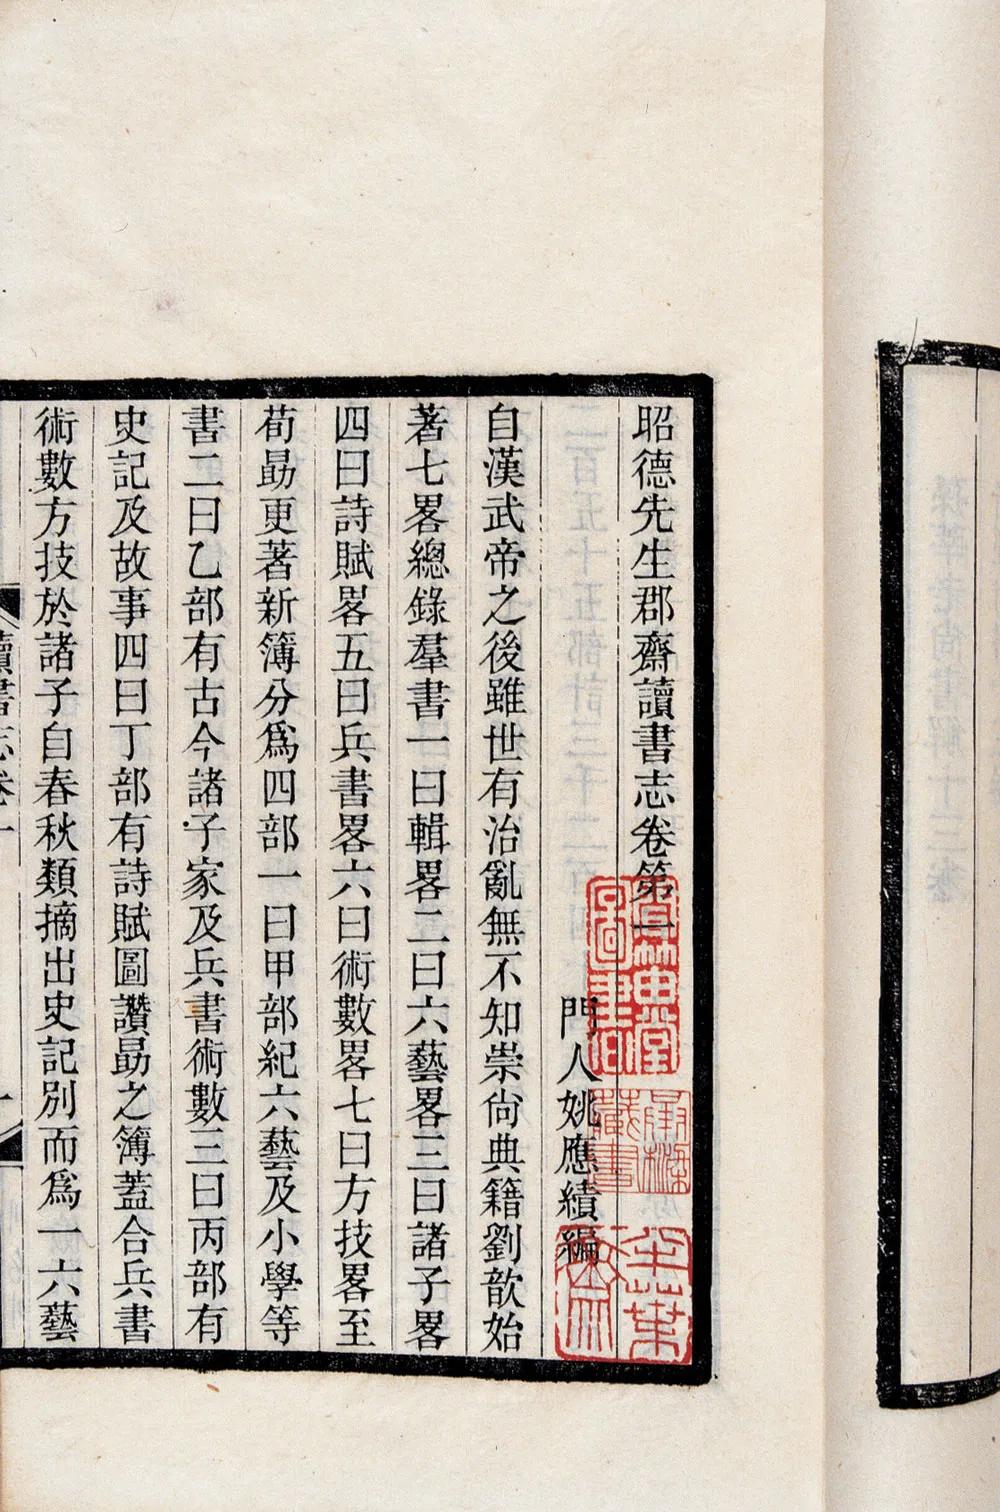 昭德先生郡齋讀書志卷第一
門人姚應績編
自漢武帝之後雖世有治亂無不知崇尙典籍劉歆始
著七畧總錄羣書一曰輯畧二曰六藝畧三曰諸子畧
四曰詩賦畧五曰兵書畧六曰術數畧七曰方技畧至
荀勗更著新簿分爲四部一曰甲部紀六藝及小學等
書二曰乙部有古今諸子家及兵書術數三曰丙部有
史記及故事四曰丁部有詩賦圖讚勗之簿蓋合兵書
術數方技於諸子自春秋類摘出史記別而爲一六藝
讀書志卷一